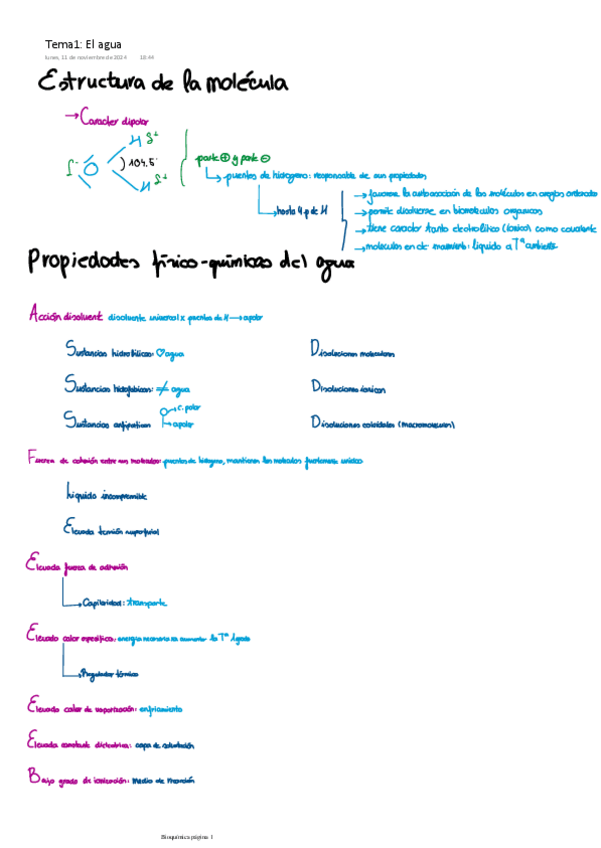 Tema1: El agua
lunes, 11 de noviembre de 2024 18:44
Estructura de la molécula
→ Caracter dipolar
H δ+
δ- O ) 104.5°
H δ+
parte ⊕ y parte ⊖
puentes de hidrógeno: responsable de sus propiedades
→ hasta 4 p de H
→ favorece la autoasociación de las moléculas en arreglos ordenados
→ permite disolverse en biomoléculas orgánicas
→ tiene carácter tanto electrolítico (iónico) como covalente
→ moléculas en movimiento: líquido a Tª ambiente
Propiedades físico-químicas del agua
Acción disolvente disolvente universal x puentes de H → apolar
Sustancias hidrofílicas: ♡ agua
Disoluciones moleculares
Sustancias hidrofóbicas: ≠ agua
Disoluciones iónicas
Sustancias anfipáticas c. polar
→ apolar
Disoluciones coloidales (macromoléculas)
Fuerza de cohesión entre sus moléculas: puentes de hidrógeno, mantienen las moléculas fuertemente unidas
Líquido incompresible
Elevada tensión superficial
Elevada fuerza de adhesión
→ Capilaridad: transporte
Elevado calor específico: energía necesaria xa aumentar la Tª 1 grado
→ Regulador térmico
Elevado calor de vaporización: enfriamiento
Elevada constante dieléctrica: capa de solvatación
Bajo grado de ionización: medio de reacción
Bioquímica página 1